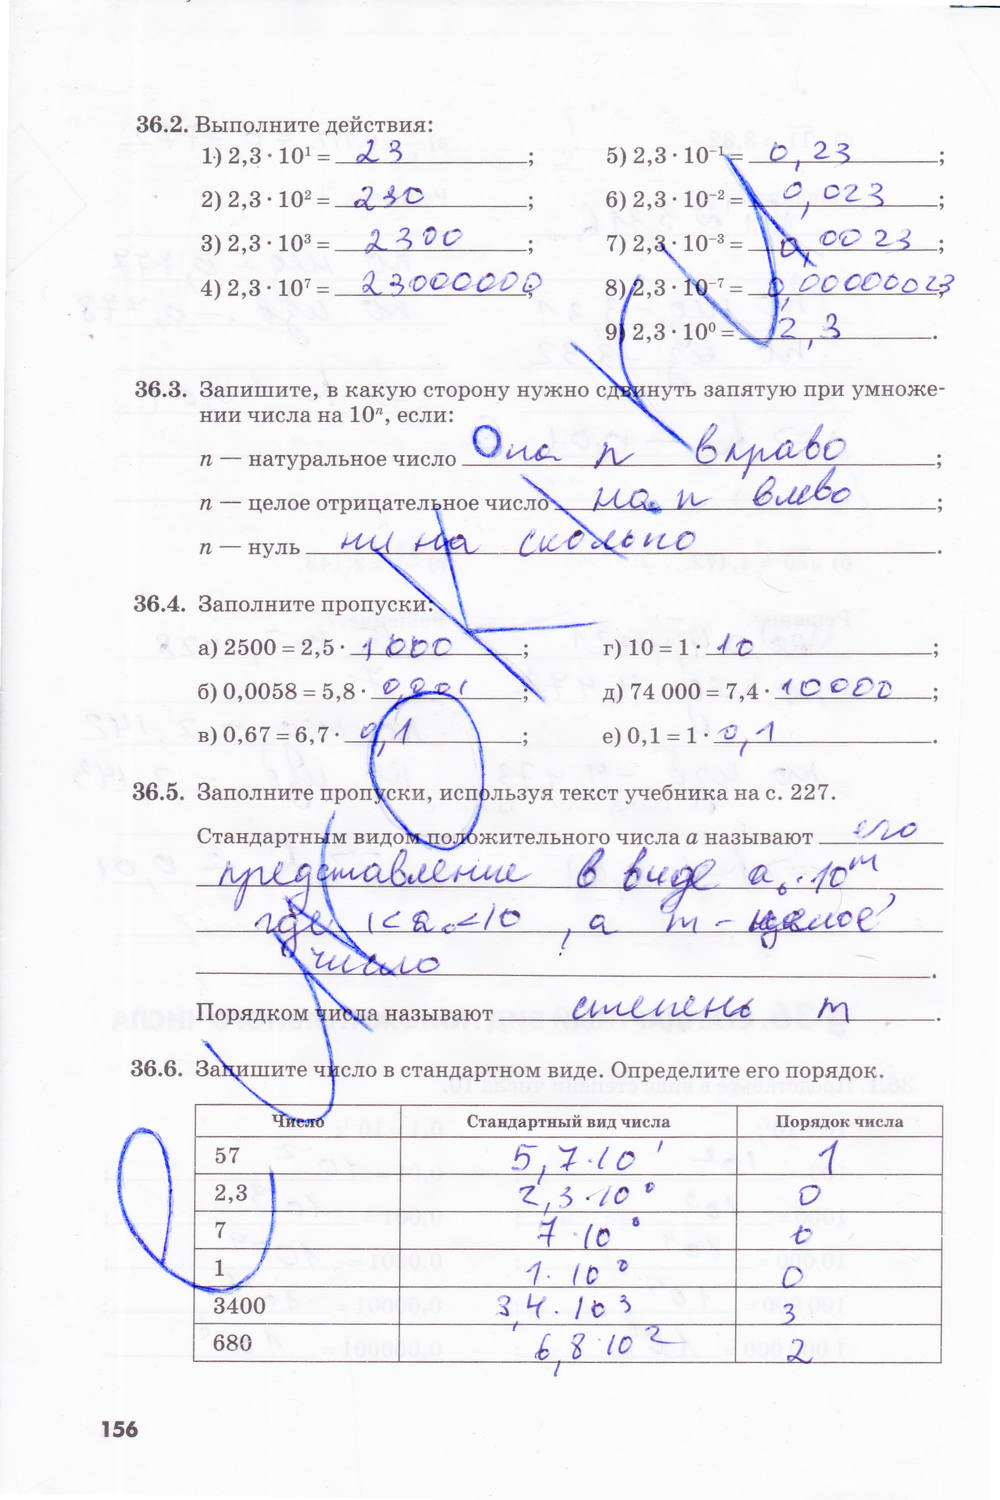 36.2. Выполните действия:
1) 2,3 · 10¹ = 23 ; 5) 2,3 · 10⁻¹ = 0,23 ;
2) 2,3 · 10² = 230 ; 6) 2,3 · 10⁻² = 0,023 ;
3) 2,3 · 10³ = 2300 ; 7) 2,3 · 10⁻³ = 0,0023 ;
4) 2,3 · 10⁷ = 23000000 ; 8) 2,3 · 10⁻⁷ = 0,00000023 ;
9) 2,3 · 10⁰ = 2,3 .
36.3. Запишите, в какую сторону нужно сдвинуть запятую при умноже-
нии числа на 10ⁿ, если:
n — натуральное число на n вправо ;
n — целое отрицательное число на n влево ;
n — нуль ни на сколько .
36.4. Заполните пропуски:
а) 2500 = 2,5 · 1000 ; г) 10 = 1 · 10 ;
б) 0,0058 = 5,8 · 0,001 ; д) 74 000 = 7,4 · 10000 ;
в) 0,67 = 6,7 · 0,1 ; е) 0,1 = 1 · 0,1 .
36.5. Заполните пропуски, используя текст учебника на с. 227.
Стандартным видом положительного числа a называют его
представление в виде a₀·10ᵐ,
где 1<a₀<10, а m - целое
число .
Порядком числа называют степень m .
36.6. Запишите число в стандартном виде. Определите его порядок.
Число Стандартный вид числа Порядок числа
57 5,7·10¹ 1
2,3 2,3·10⁰ 0
7 7·10⁰ 0
1 1·10⁰ 0
3400 3,4·10³ 3
680 6,8·10² 2
156